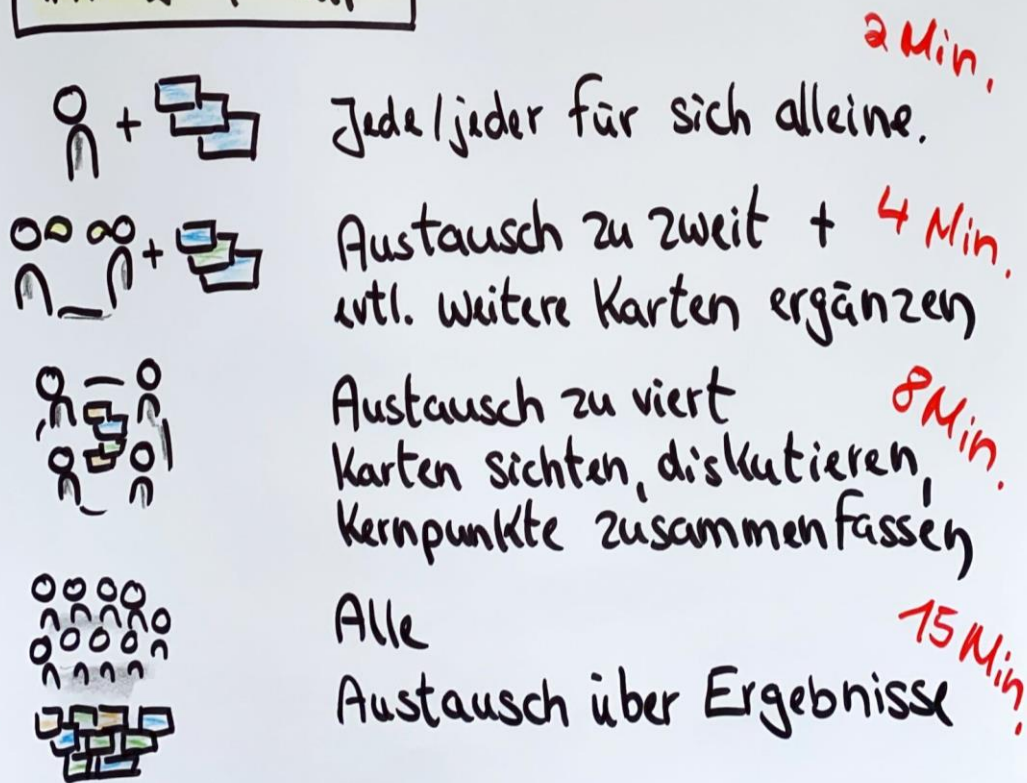 2 Min.
Jede/jeder für sich alleine.
Austausch zu zweit + 4 Min.
evtl. weitere Karten ergänzen
Austausch zu viert 8 Min.
Karten sichten, diskutieren,
Kernpunkte zusammenfassen
Alle 15 Min.
Austausch über Ergebnisse